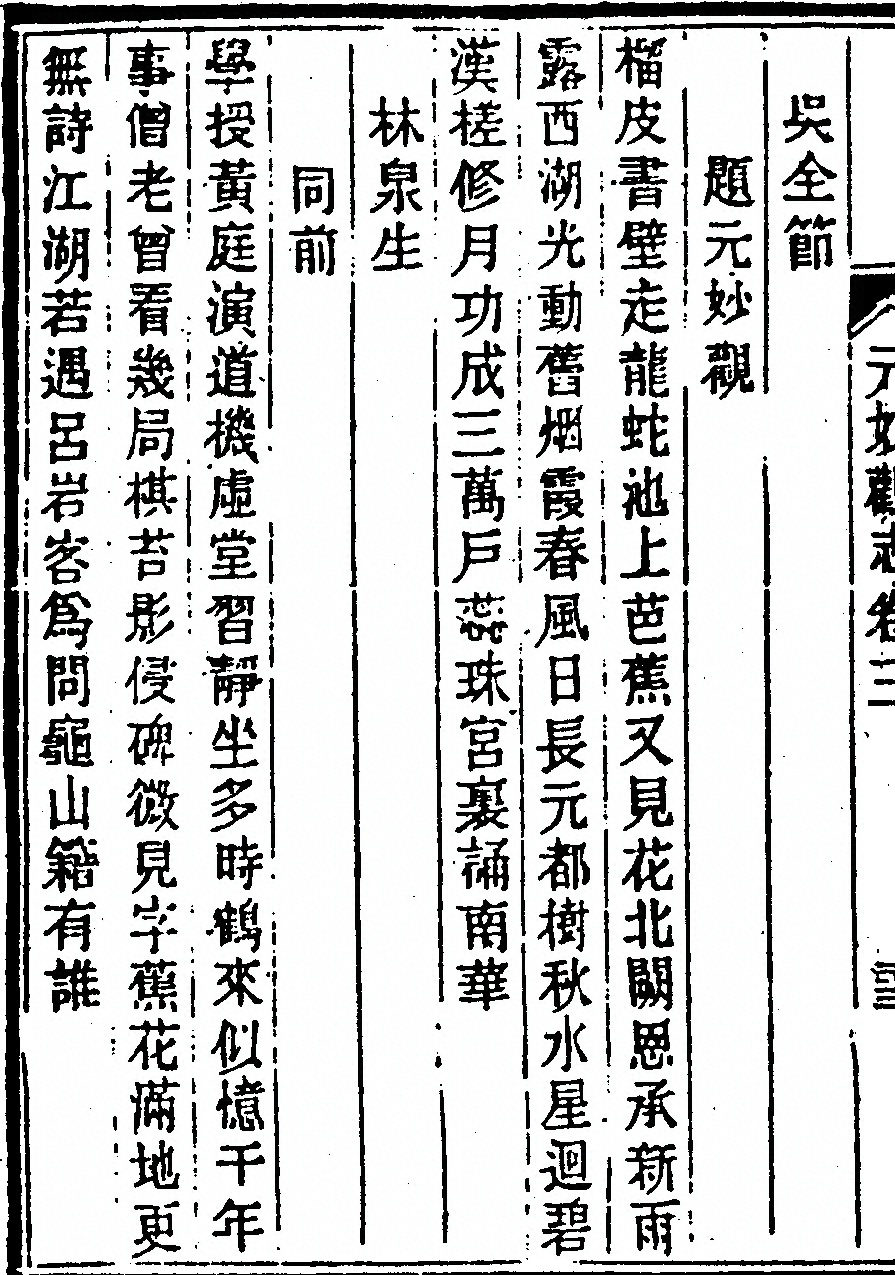 元妙觀志卷三
吳全節
題元妙觀
榴皮書壁走龍蛇池上芭蕉又見花北闕恩承新雨
露西湖光動舊烟霞春風日長元都樹秋水星迴碧
漢槎修月功成三萬戶蕊珠宮裏誦南華
林泉生
同前
學授黃庭演道機虛堂習靜坐多時鶴來似憶千年
事僧老曾看幾局棋苔影侵碑微見字蕉花滿地更
無詩江湖若遇呂岩客為問龜山籍有誰